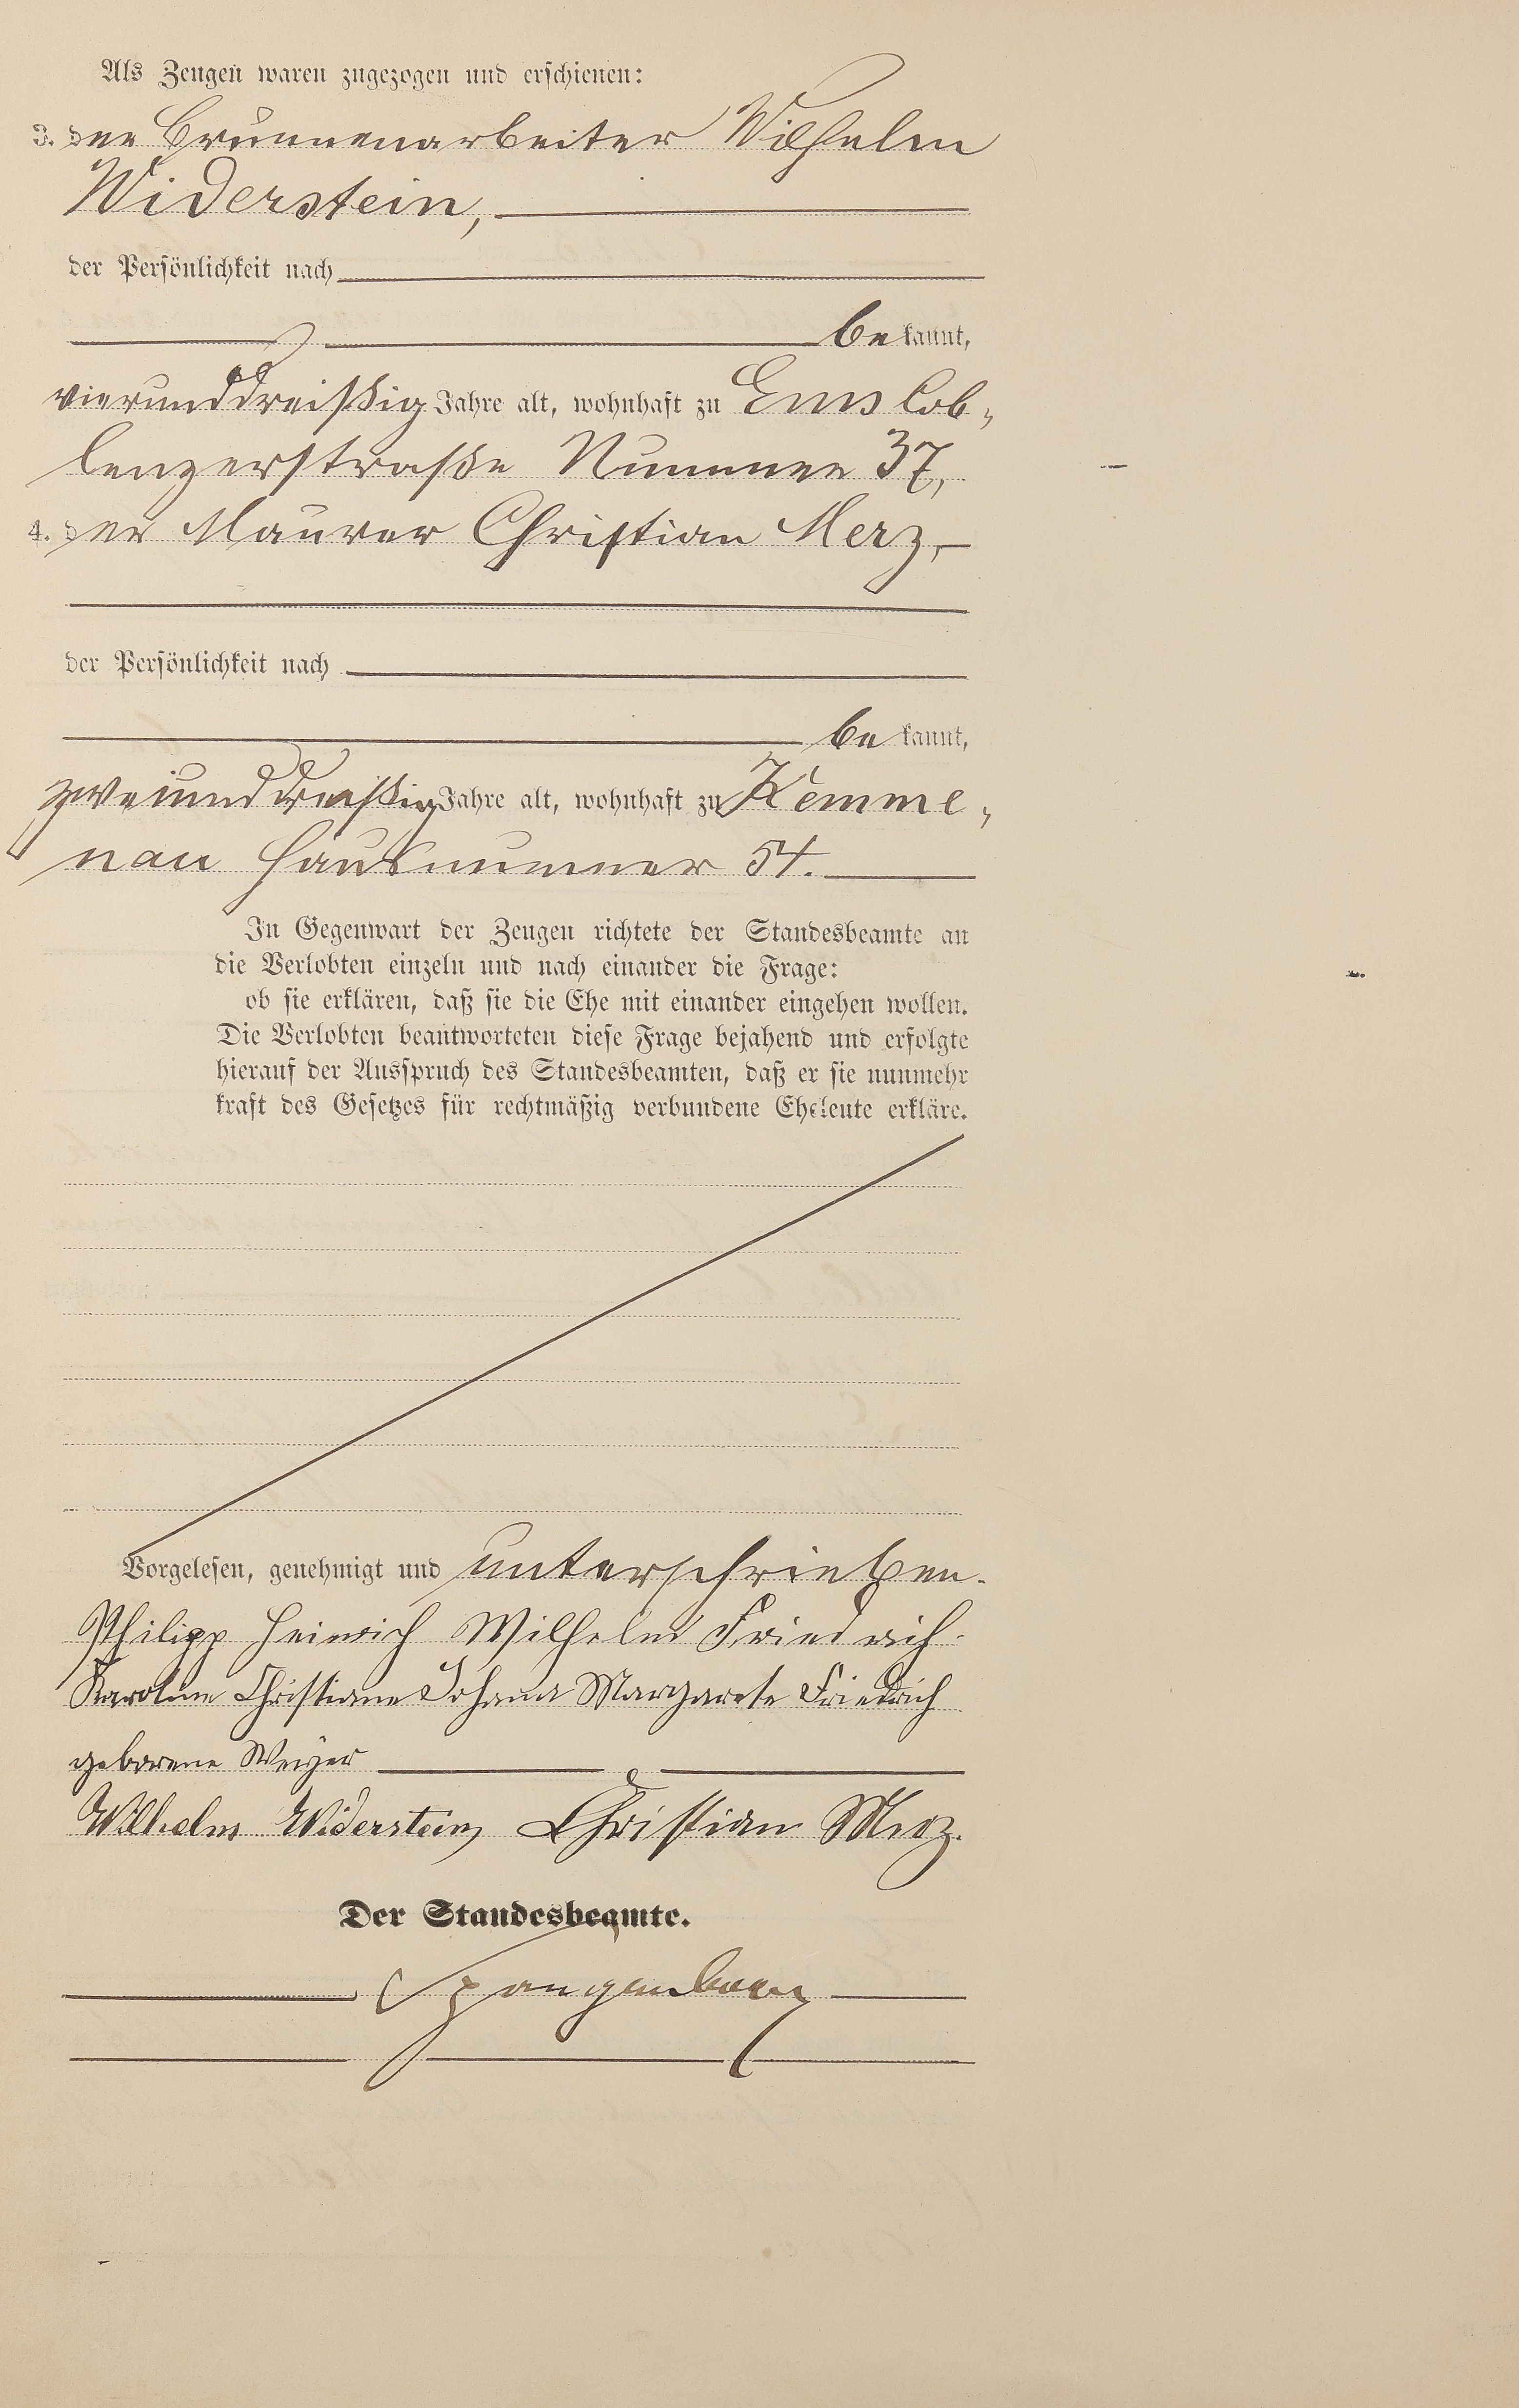 Als Zeugen waren zugezogen und erschienen:
3. der Brunnenarbeiter Wilhelm
Widerstein,
der Persönlichkeit nach
bekannt,
vierunddreißig Jahre alt, wohnhaft zu Ems Cob-
lenzerstraße Nummer 37,
4. der Maurer Christian Merz,
der Persönlichkeit nach
bekannt,
zweiunddreißig Jahre alt, wohnhaft zu Kemme-
nau Hausnummer 54.
In Gegenwart der Zeugen richtete der Standesbeamte an
die Verlobten einzeln und nach einander die Frage:
ob sie erklären, daß sie die Ehe mit einander eingehen wollen.
Die Verlobten beantworteten diese Frage bejahend und erfolgte
hierauf der Ausspruch des Standesbeamten, daß er sie nunmehr
kraft des Gesetzes für rechtmäßig verbundene Eheleute erkläre.
Vorgelesen, genehmigt und unterschrieben.
Philipp Heinrich Wilhelm Friedrich.
Karoline Christiane Johana Margarete Friedrich
geborene Weyer
Wilhelm Widerstein Christian Merz.
Der Standesbeamte.
Spangenberg